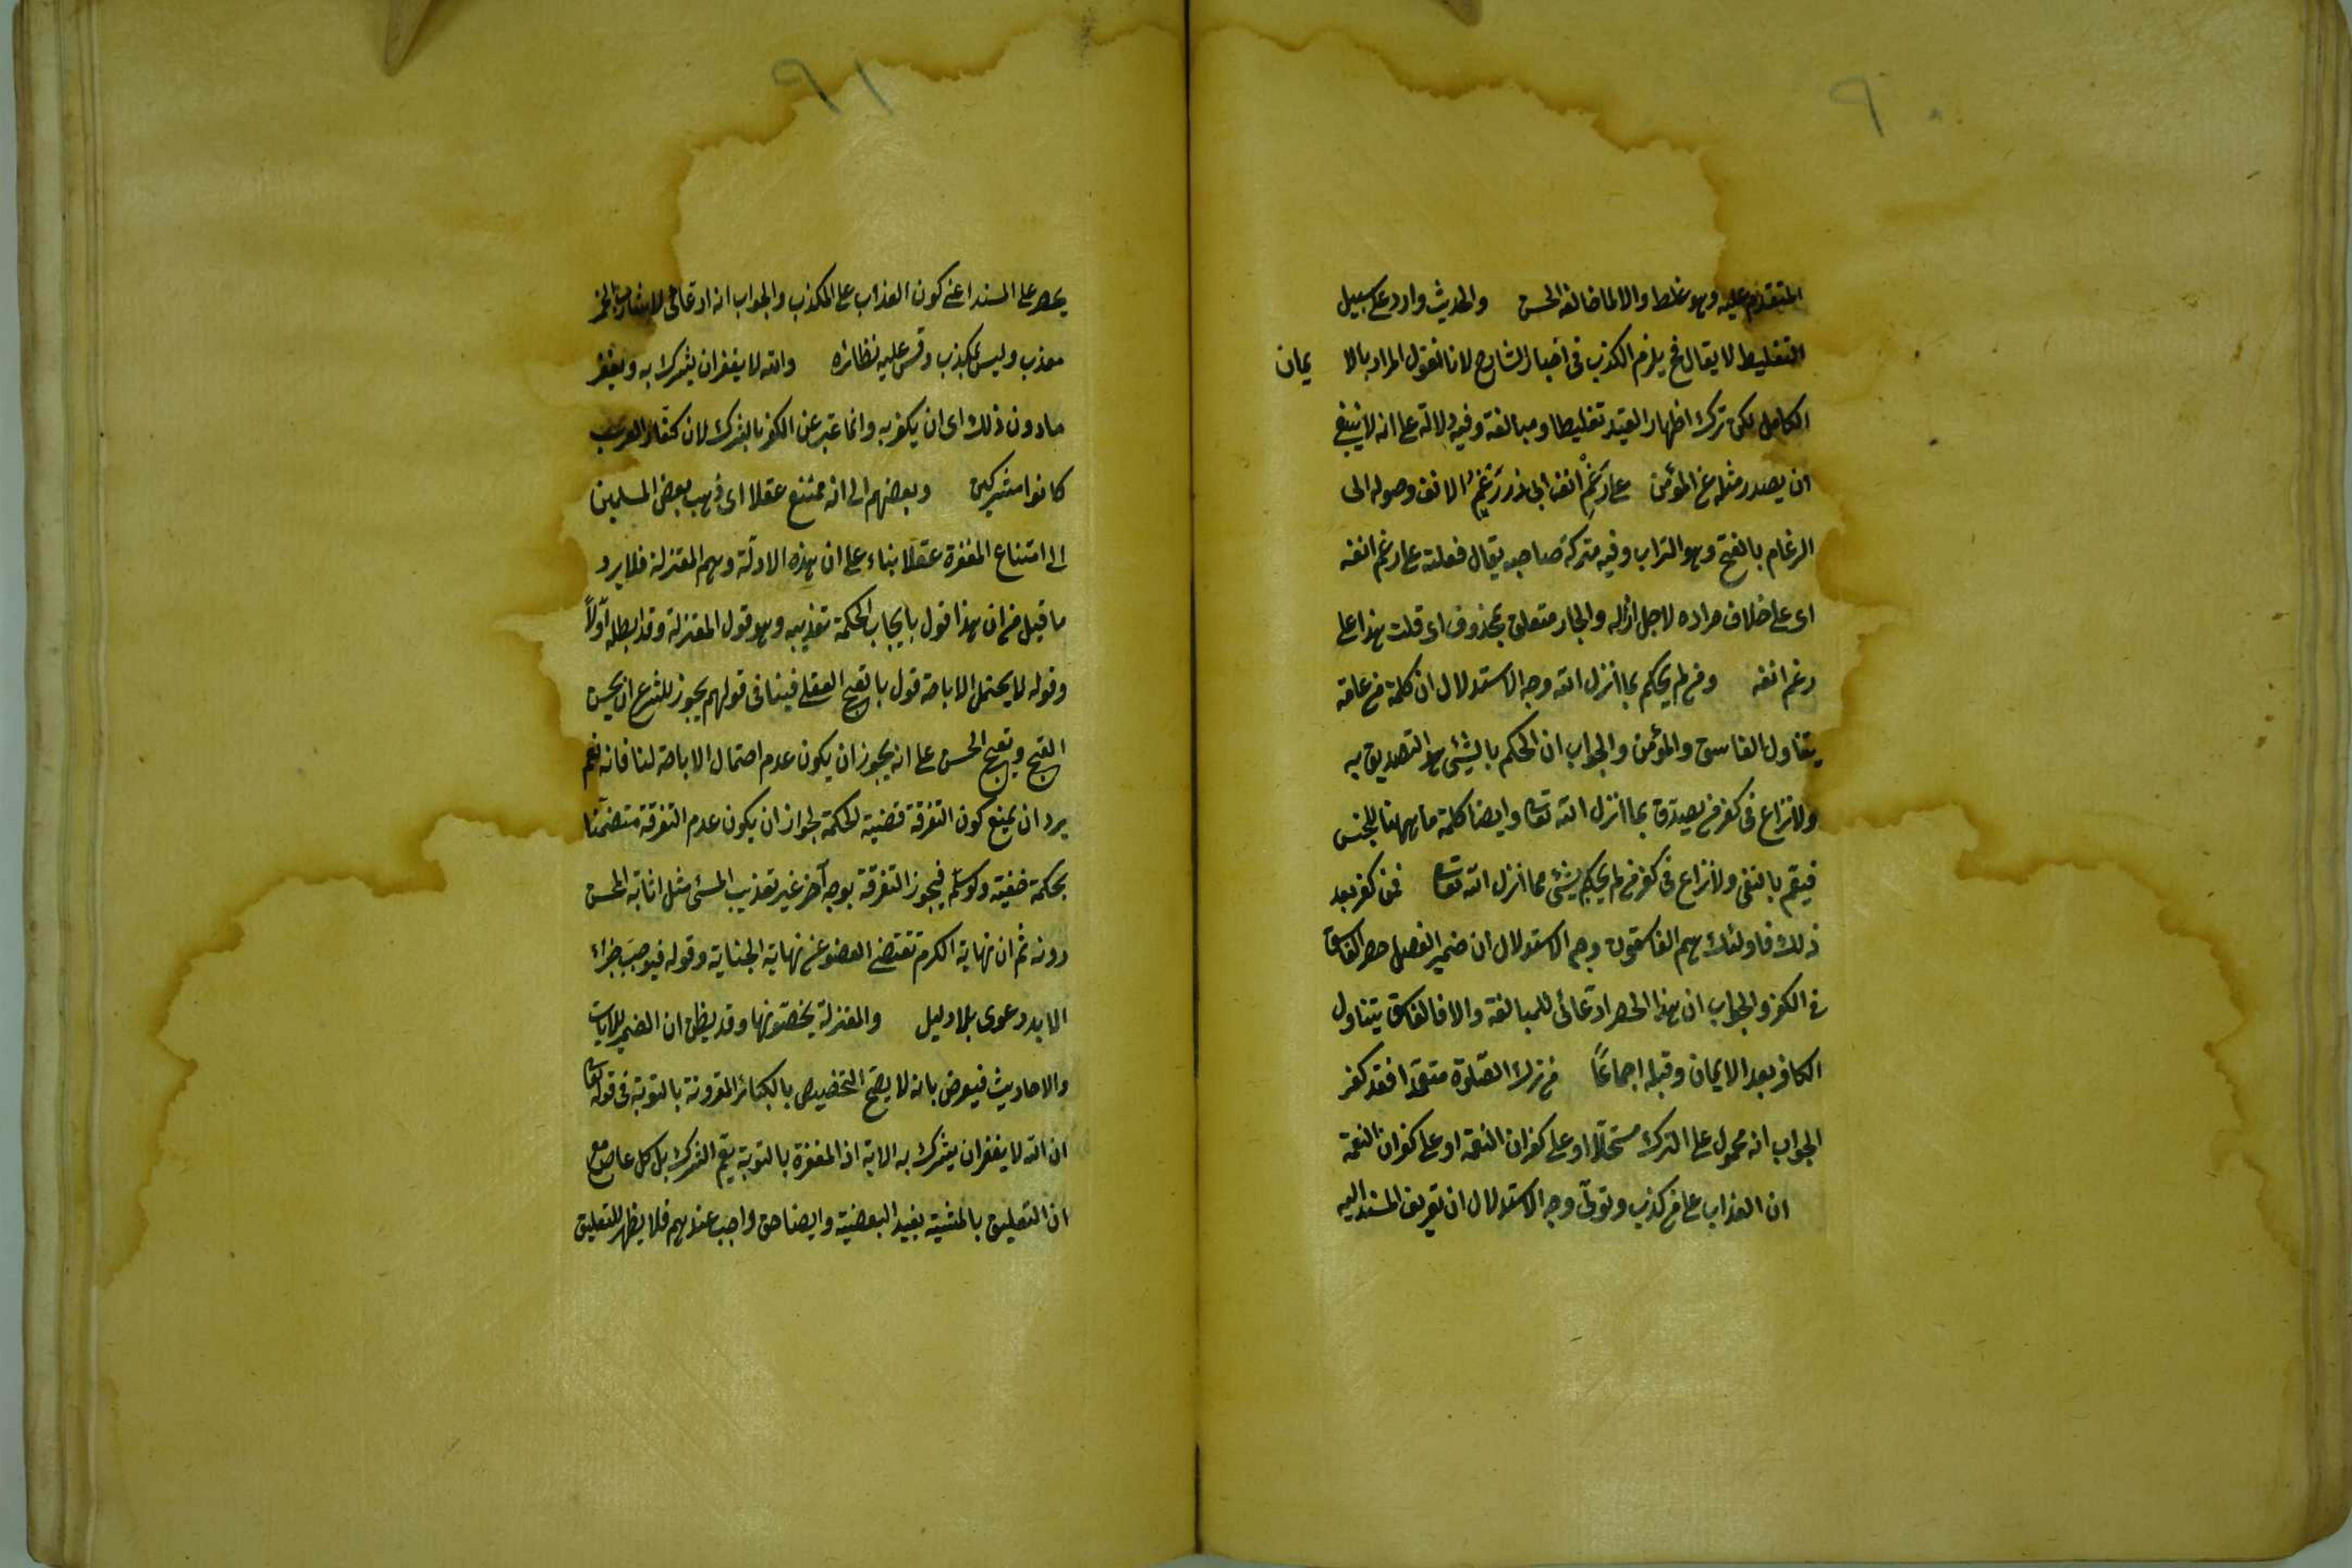 ٩٠
المتقدم عليه وهو غلط والا لما خالفه الحسن والحديث وارد على سبيل
التغليط لا يقال فح يلزم الكذب في اخبار الشارع لانا نقول المراد بالا يمان
الكامل لكن ترك اظهار القيد تغليظا ومبالغة وفيه دلالة على انه لا ينبغي
ان يصدر مثله عن المؤمن على رَغْمِ انف ابى ذر رَغْمِ الانف وصوله الى
الرغام بالفتح وهو التراب وفيه مذلة صاحبه يقال فعلته على رغم انفه
اى على خلاف مراده لاجل اذلاله والجار متعلق بمحذوف اى قلت هذا على
رغم انفه ومن لم يحكم بما انزل الله وجه الاستدلال ان كلمة من عامة
يتناول الفاسق والمؤمن والجواب ان الحكم بالشئ هو التصديق به
ولا نزاع في كفر من لم يصدق بما انزل الله تعا وايضا كلمة ما ههنا للجنس
فيعم بالنفى ولا نزاع في كفر من لم يحكم بشئ مما انزل الله تعا فمن كفر بعد
ذلك فاولئك هم الفاسقون وجه الاستدلال ان ضمير الفصل حصر الفاسق
في الكفر والجواب ان هذا الحصر ادعائى للمبالغة والا فالفاسق يتناول
الكافر بعد الايمان وقبله اجماعًا من ترك الصلوة متعمدا فقد كفر
الجواب انه محمول على الترك مستحلا او على كفران النعمة او على كفران النعمة
ان العذاب على من كذب وتولّى وجه الاستدلال ان تعريف المسند اليه
٩١
يحصر على المسند اعنى كون العذاب على المكذب والجواب انه ادعائى لان شارب الخمر
معذب وليس بمكذب وقس عليه نظائره والله لا يغفر ان يشرك به ويغفر
ما دون ذلك اى ان يكفر به وانما عبّر عن الكفر بالشرك لان كفار العرب
كانوا مشركين وبعضهم الى انه ممتنع عقلا اى ذهب بعض المسلمين
الى امتناع المغفرة عقلا بناء على ان هذه الادلّة وهم المعتزلة فلا يرد
ما قيل من ان هذا قول بايجاب الحكمة تعذيبه وهو قول المعتزلة وقد ابطله اولاً
وقوله لا يحتمل الاباحة قول بالقبح العقلى فينافى قولهم يجوز للشرع ان يحسن
القبيح ويقبح الحسن على انه يجوز ان يكون عدم احتمال الاباحة لنا فانه نعم
يرد ان يمنع كون التفرقة قضية للحكمة لجواز ان يكون عدم التفرقة متضمنا
بحكمة خفية ولو سلم فيجوز التفرقة بوجه آخر غير تعذيب المسئ مثل اثابة المحسن
دونه ثم ان نهاية الكرم تقتضى العفو عن نهاية الجناية وقوله فيوجب جزاء
الابد دعوى بلا دليل والمعتزلة يخصونها وقد يظن ان الضمير للايات
والاحاديث فيعرض بانه لا يصح التخصيص بالكبائر المقرونة بالتوبة في قوله تعا
ان الله لا يغفر ان يشرك به الاية اذ المغفرة بالتوبة يعم الشرك بل كل عاص مع
ان التعليق بالمشية يفيد البعضية وايضا حق واجب عندهم فلا يظهر للتعليق